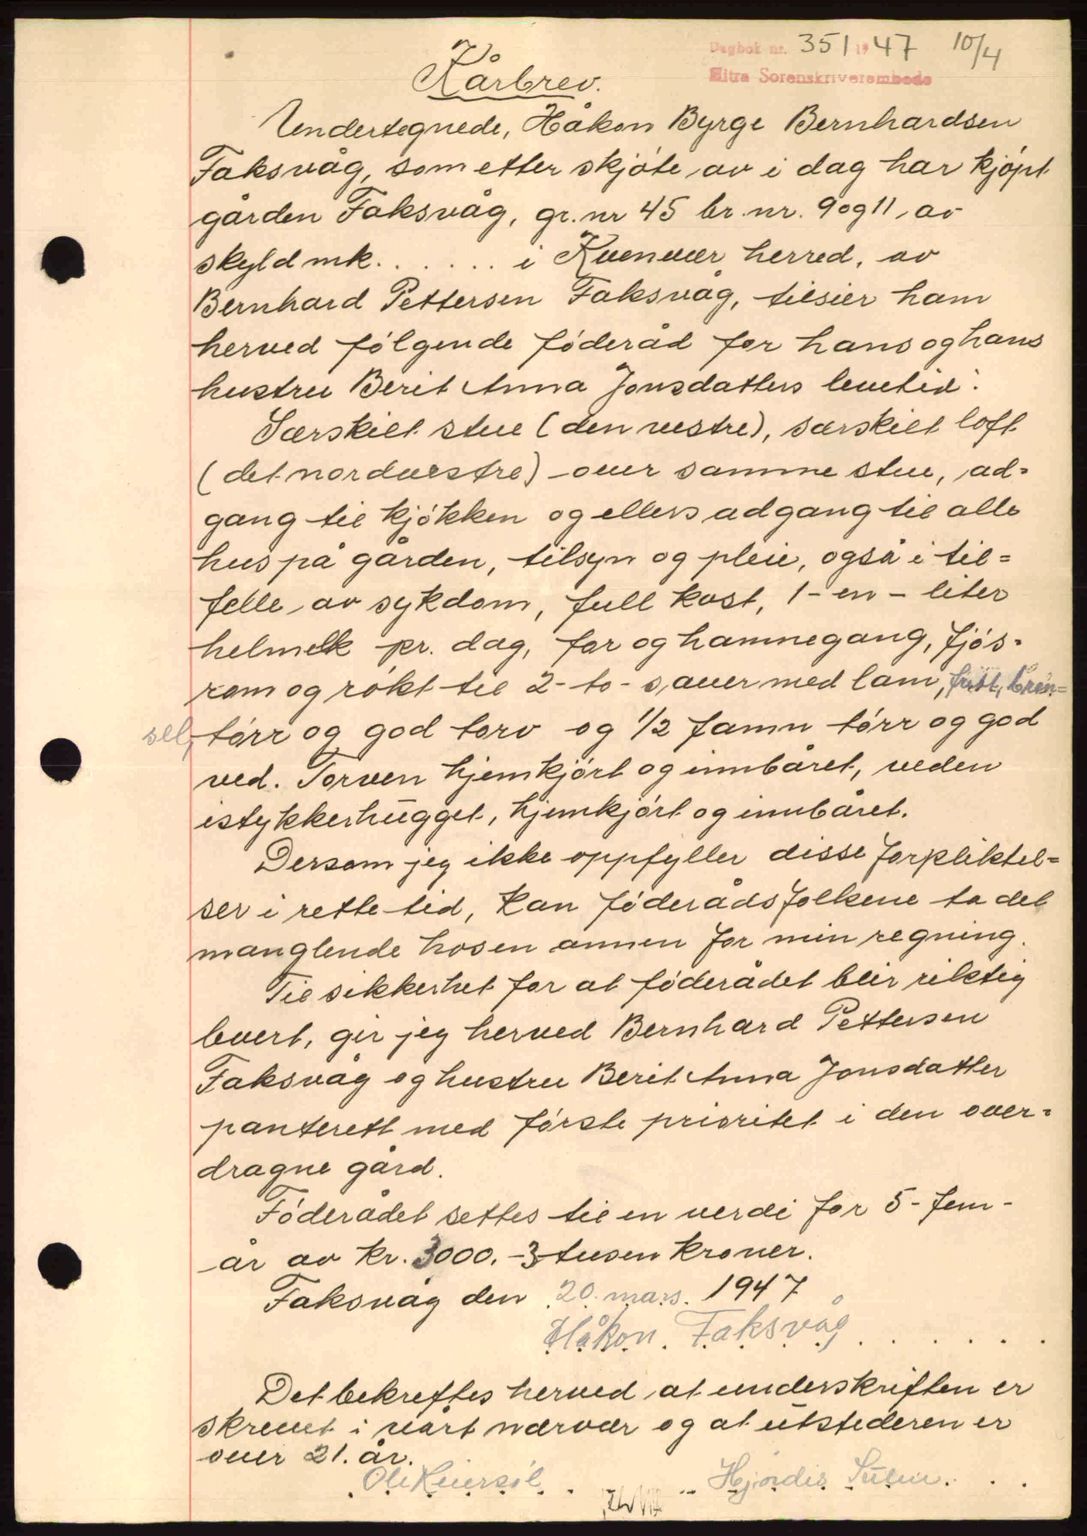 Dagbok nr. 351 1947 10/4
Hitra Sorenskriverembede
Kårbrev.
Undertegnede, Håkon Byrge Bernhardsen
Faksvåg, som etter skjøte av i dag har kjøpt
gården Faksvåg, gr. nr 45 br. nr. 9 og 11, av
skyld mk. . . . . . . i Kvenvær herred, av
Bernhard Pettersen Faksvåg, tilsier ham
herved følgende føderåd for hans og hans
hustru Berit Anna Jonsdatters levetid:
Særskilt stue (den vestre), særskilt loft
(det nordvestre) over samme stue, ad=
gang til kjøkken og ellers adgang til alle
hus på gården, tilsyn og pleie, også i til=
felle av sykdom, full kost, 1- en - liter
helmelk pr. dag, for og hamnegang, fjøs-
rom og røkt til 2- to - sauer med lam, fritt bren=
sel, tørr og god torv og 1/2 famn tørr og god
ved. Torven hjemkjørt og innbåret, veden
istykkerhugget, hjemkjørt og innbåret.
Dersom jeg ikke oppfyller disse forpliktel=
ser i rette tid, kan føderådsfolkene ta det
manglende hos en annen for min regning.
Til sikkerhet for at føderådet blir riktig
levert, gir jeg herved Bernhard Pettersen
Faksvåg og hustru Berit Anna Jonsdatter
panterett med første prioritet i den over=
dragne gård.
Føderådet settes til en verdi for 5- fem -
år av kr. 3000.- 3 tusen kroner.
Faksvåg den 20. mars. 1947
Håkon Faksvåg . . . . . .
Det bekreftes herved at underskriften er
skrevet i vårt nærvær og at utstederen er
over 21. år.
Ole Hjørdis